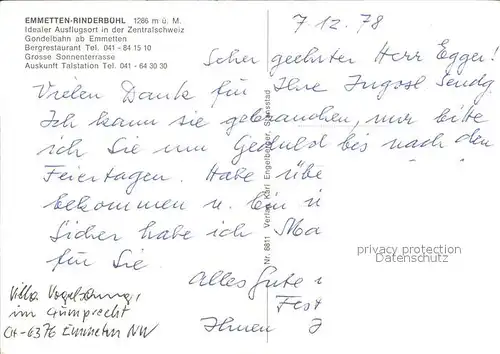 EMMETTEN-RINDERBÜHL 1286 m ü. M.
Idealer Ausflugsort in der Zentralschweiz
Gondelbahn ab Emmetten
Bergrestaurant Tel. 041 - 84 15 10
Grosse Sonnenterrasse
Auskunft Talstation Tel. 041 - 64 30 30
7.12.78
Sehr geehrter Herr Egger!
Vielen Dank für Ihre Jugosl. Sendg.
Ich kann sie gebrauchen, nur bitte
ich Sie um Geduld bis nach den
Feiertagen. Habe übe
bekommen u. bin i
Sicher habe ich Ma
für Sie.
Alles Gute
Fest
Ihnen
Villa Vogelsang,
im Gumprecht
CH-6376 Emmetten NW
Nr. 8811 Verlag Karl Engelberger, Stansstad
privacy protection
AnsichtskartenHandel.de